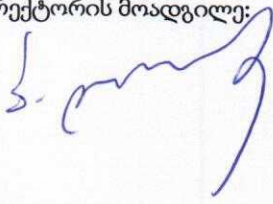 რექტორის მოადგილე: